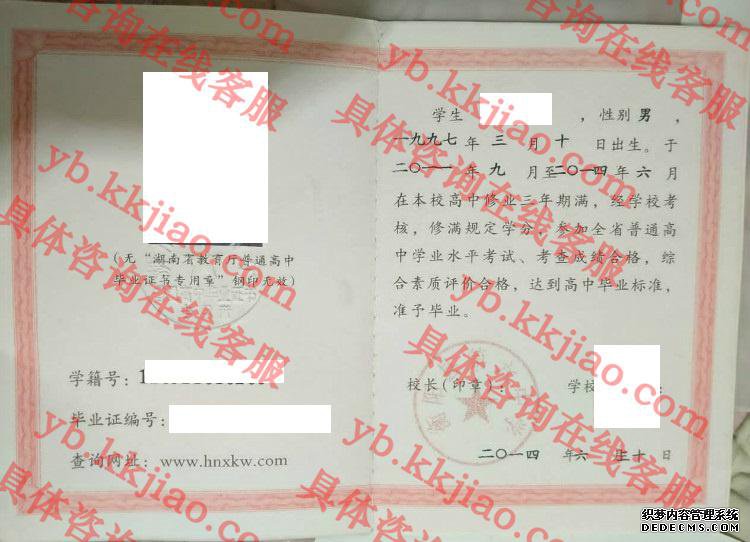 (无“湖南省教育厅普通高中
毕业证书专用章”钢印无效)
学籍号:
毕业证编号:
查询网址: www.hnxkw.com
学生 , 性别男,
一九九七年三月十日出生。于
二〇一一年九月至二〇一四年六月
在本校高中修业三年期满, 经学校考
核, 修满规定学分, 参加全省普通高
中学业水平考试、考查成绩合格, 综
合素质评价合格, 达到高中毕业标准,
准予毕业。
校长(印章): 学校 :
二〇一四年六 十日
具体咨询在线客服
yb.kkjiao.com
具体咨询在线客服
yb.kkjiao.com
具体咨询在线客服
yb.kkjiao.com
具体咨询在线客服
yb.kkjiao.com
具体咨询在线客服
yb.kkjiao.com
具体咨询在线客服
yb.kkjiao.com
具体咨询在线客服
织梦内容管理系统
DEDECMS.COM